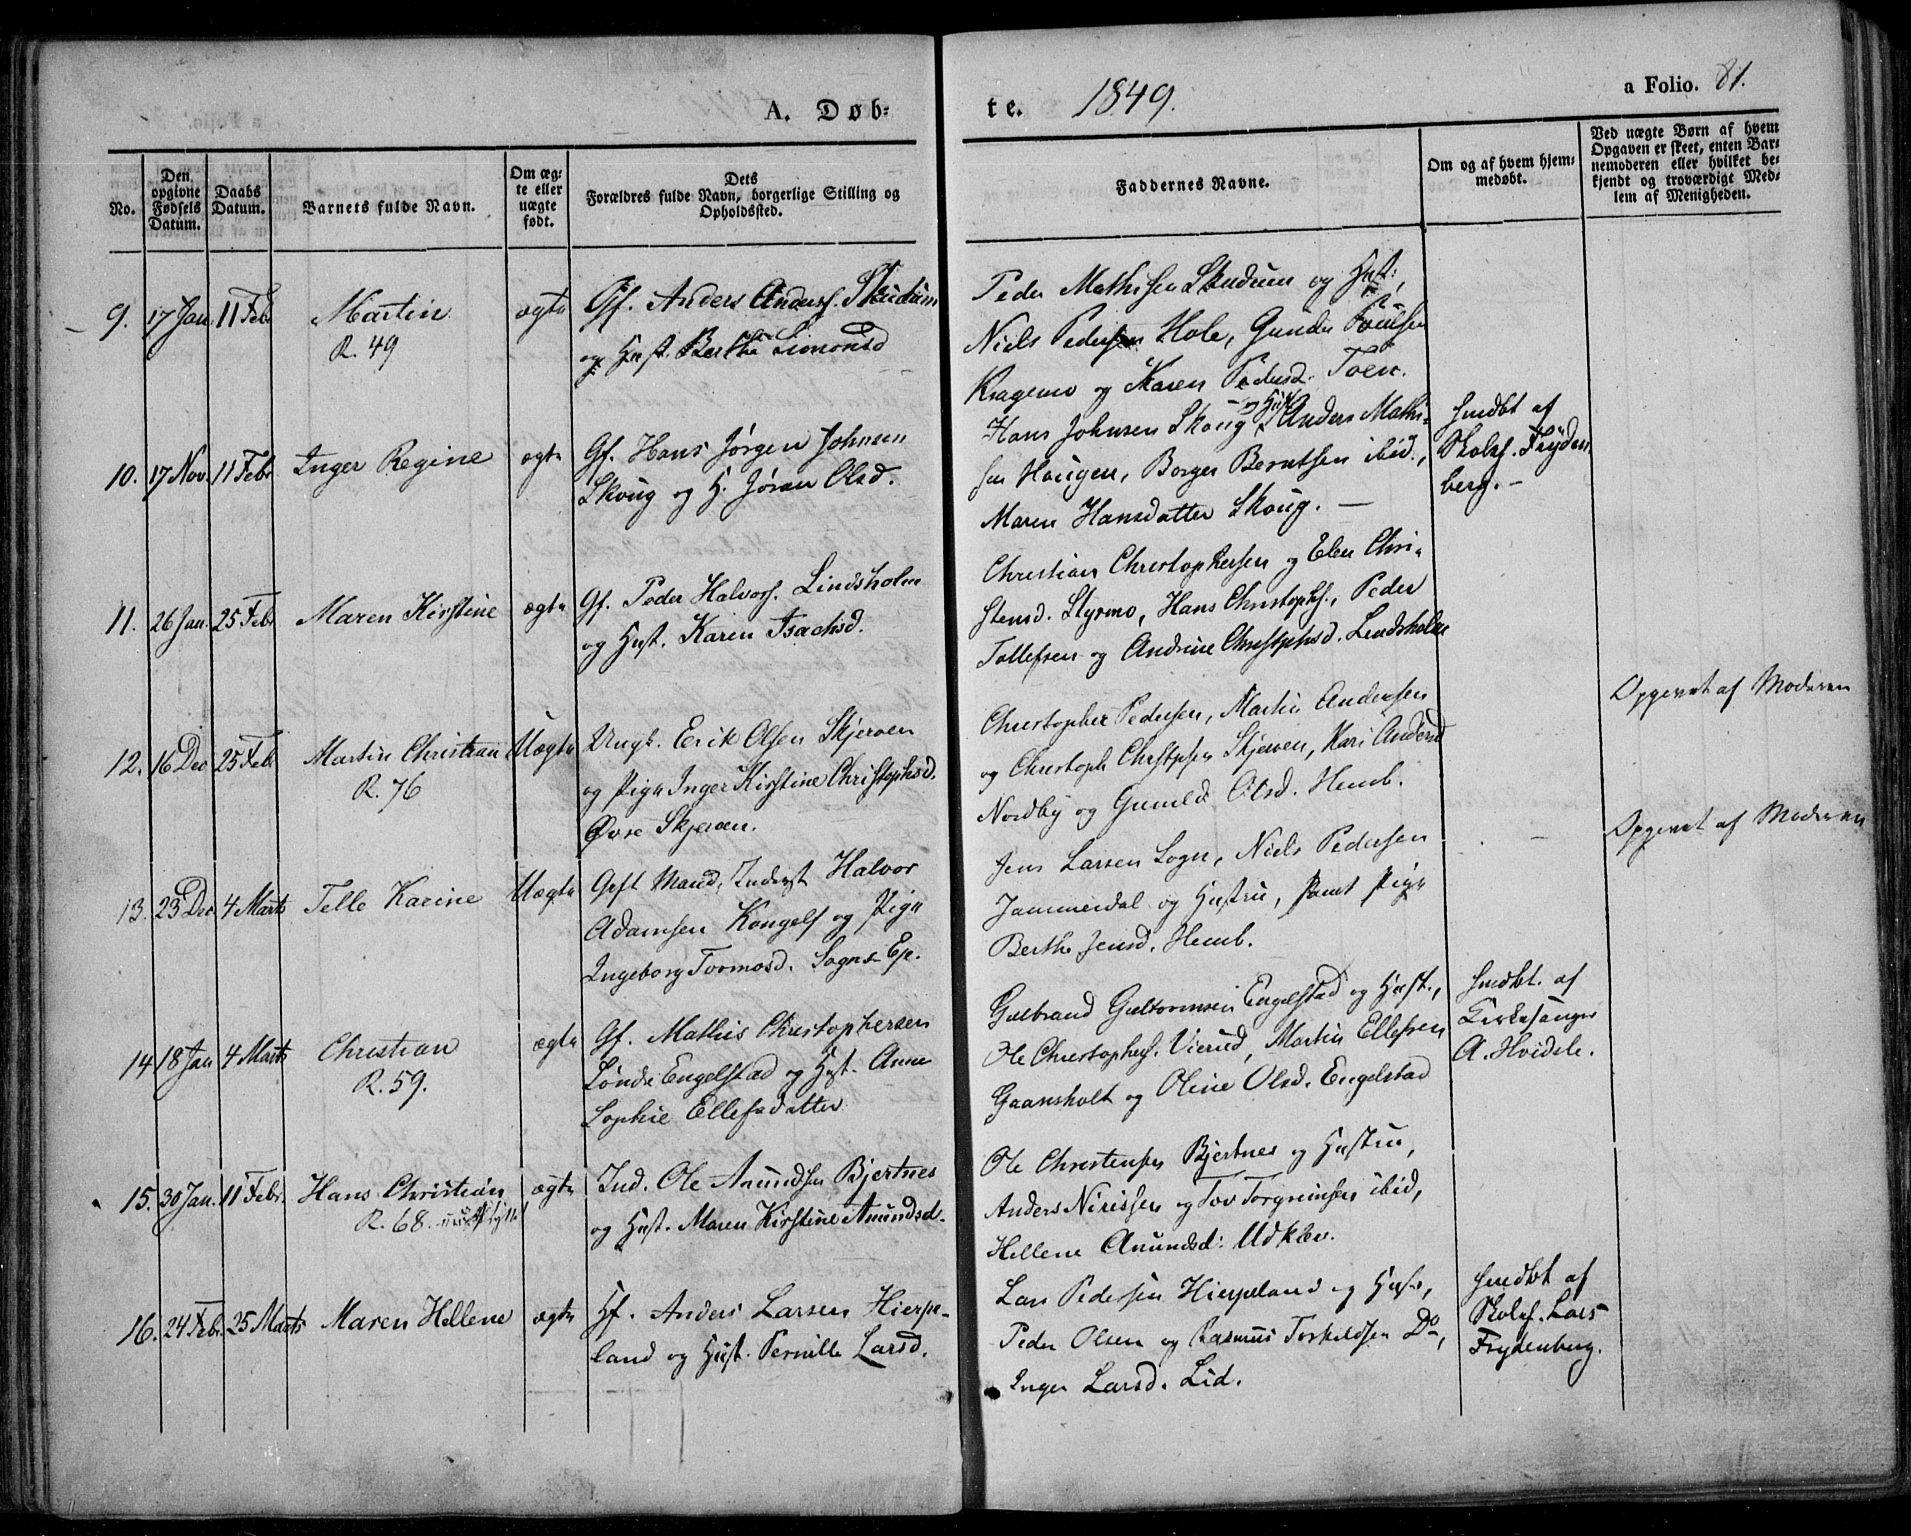 A. Døb-
te. 1849.
a Folio. 81.
No.
Den opgivne Fødsels Datum.
Daabs Datum.
Barnets fulde Navn.
Om ægte eller uægte født.
Dets Forældres fulde Navn, borgerlige Stilling og Opholdssted.
Faddernes Navne.
Om og af hvem hjemmedøbt.
Ved uægte Børn af hvem Opgaven er skeet, enten Barnemoderen eller hvilket bekjendt og troværdigt Medlem af Menigheden.
9. 17 Jan 11 Febr Martin ægte Gf. Anders Anders. Skudum
R. 49 og Hust. Berthe Simonsd
Peder Mathisen Skudum og Hust:,
Niels Pedersen Hole, Gunder Poulsen
Kragemo og Karen Pedersd. Toen.
10. 17 Nov. 11 Febr Inger Regine ægte Gf. Hans Jørgen Johnsen
Skoug og H. Jøran Olsd.
Hans Johnsen Skoug og Hust, Anders Mathi-
sen Hougen, Borger Berntsen ibid.,
Maren Hansdatter Skoug. —
hmdbt af
Skolef. Fryden
berg. —
11. 26 Jan. 25 Febr Maren Kirstine ægte Gf. Peder Halvors. Lindsholm
og Hust. Karen Isachsd.
Christian Christophersen og Elen Chri-
stensd. Styrmo, Hans Christophs., Peder
Tollefsen og Andrine Christophsd. Lindsholm
12. 16 Dec 25 Febr Martin Christian Uægte Ungk. Erik Olsen Skjerven
R. 76 og Pige Inger Kirstine Christophsd.
Øvre Skjerven.
Christopher Pedersen, Martin Andersen
og Christoph Christophsen Skjerven, Kari Andersd
Nordby og Gunild Olsd. Hemb.
Opgevet af Moderen
13. 23 Dec 4 Marts Telle Karine Uægte Gift Mand, Inderst Halvor
Adamsen Kongelf og Pige
Ingeborg Tormosd. Sogns Ej.
Jens Larsen Sogn, Niels Pedersen
Jammerdal og Hustru, samt Pige
Berthe Jensd. Hemb.
—
Opgevet af Moderen
14 18 Jan 4 Marts Christian ægte Gf. Mathis Christophersen
R. 59. Søndre Engelstad og Hust. Anne
Sophie Ellefsdatter
Gulbrand Guttormsen Engelstad og Hust.,
Ole Christophers. Vierud, Martin Ellefsen
Gaansholt og Oline Olsd. Engelstad
hmdbt. af
Kirkesanger
A. Hvidele.
15. 30 Jan. 11 Febr. Hans Christian ægte Ind. Ole Anundsen Bjertnes
R. 68. og Hust. Maren Kirstine Anundsd.
Ole Christensen Bjertnes og Hustru,
Anders Nirissen og Tov Torgrimsen ibid,
Hellene Anundsd: Udklev.
16. 24 Febr. 25 Marts Maren Hellene ægte Hf. Anders Larsen Hierpe-
land og Hust. Pernille Larsd.
Lars Pedersen Hierpeland og Hust.,
Peder Olsen og Rasmus Torkildsen Do,
Inger Larsd. Lid.
hmdbt af
Skolef. Lars
Frydenberg.